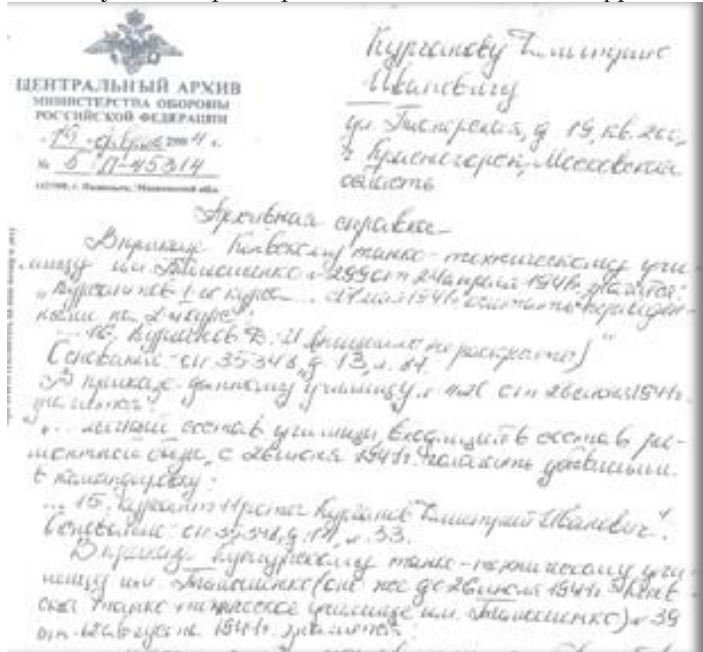 ЦЕНТРАЛЬНЫЙ АРХИВ
МИНИСТЕРСТВА ОБОРОНЫ
РОССИЙСКОЙ ФЕДЕРАЦИИ
"19" февраля 2004 г.
№ 6 П-45314
Курганову Дмитрию
Ивановичу
д 19, кв. 200,
г Красногорск, Московская
область
Архивная справка
В приказе Киевскому танко-техническому учи-
лищу им. Тимошенко № 299 от 24 апреля 1941г. значится:
"Курсантов 1-го курса ... 1941г. считать переведен-
ными на 2-й курс":
... 16. Курганов Д.И (инициалы не раскрыты)"
Основание: оп 35348, д 13, л.
В приказе данному училищу № от 26 июня 1941г.
значится:
"... личный состав училища, входящий в состав ре-
монтной базы, с 26 июня 1941г. полагать убывшим
в командировку:
... 15. Курсант Курганов Дмитрий Иванович".
Основание: оп 35348, д. л. 33.
В приказе Кунгурскому танко-техническому учи-
лищу им. Тимошенко (оно же до 26 июля 1941г. Киев-
ское танко-техническое училище им. Тимошенко) № 39
от августа 1941г. значится: